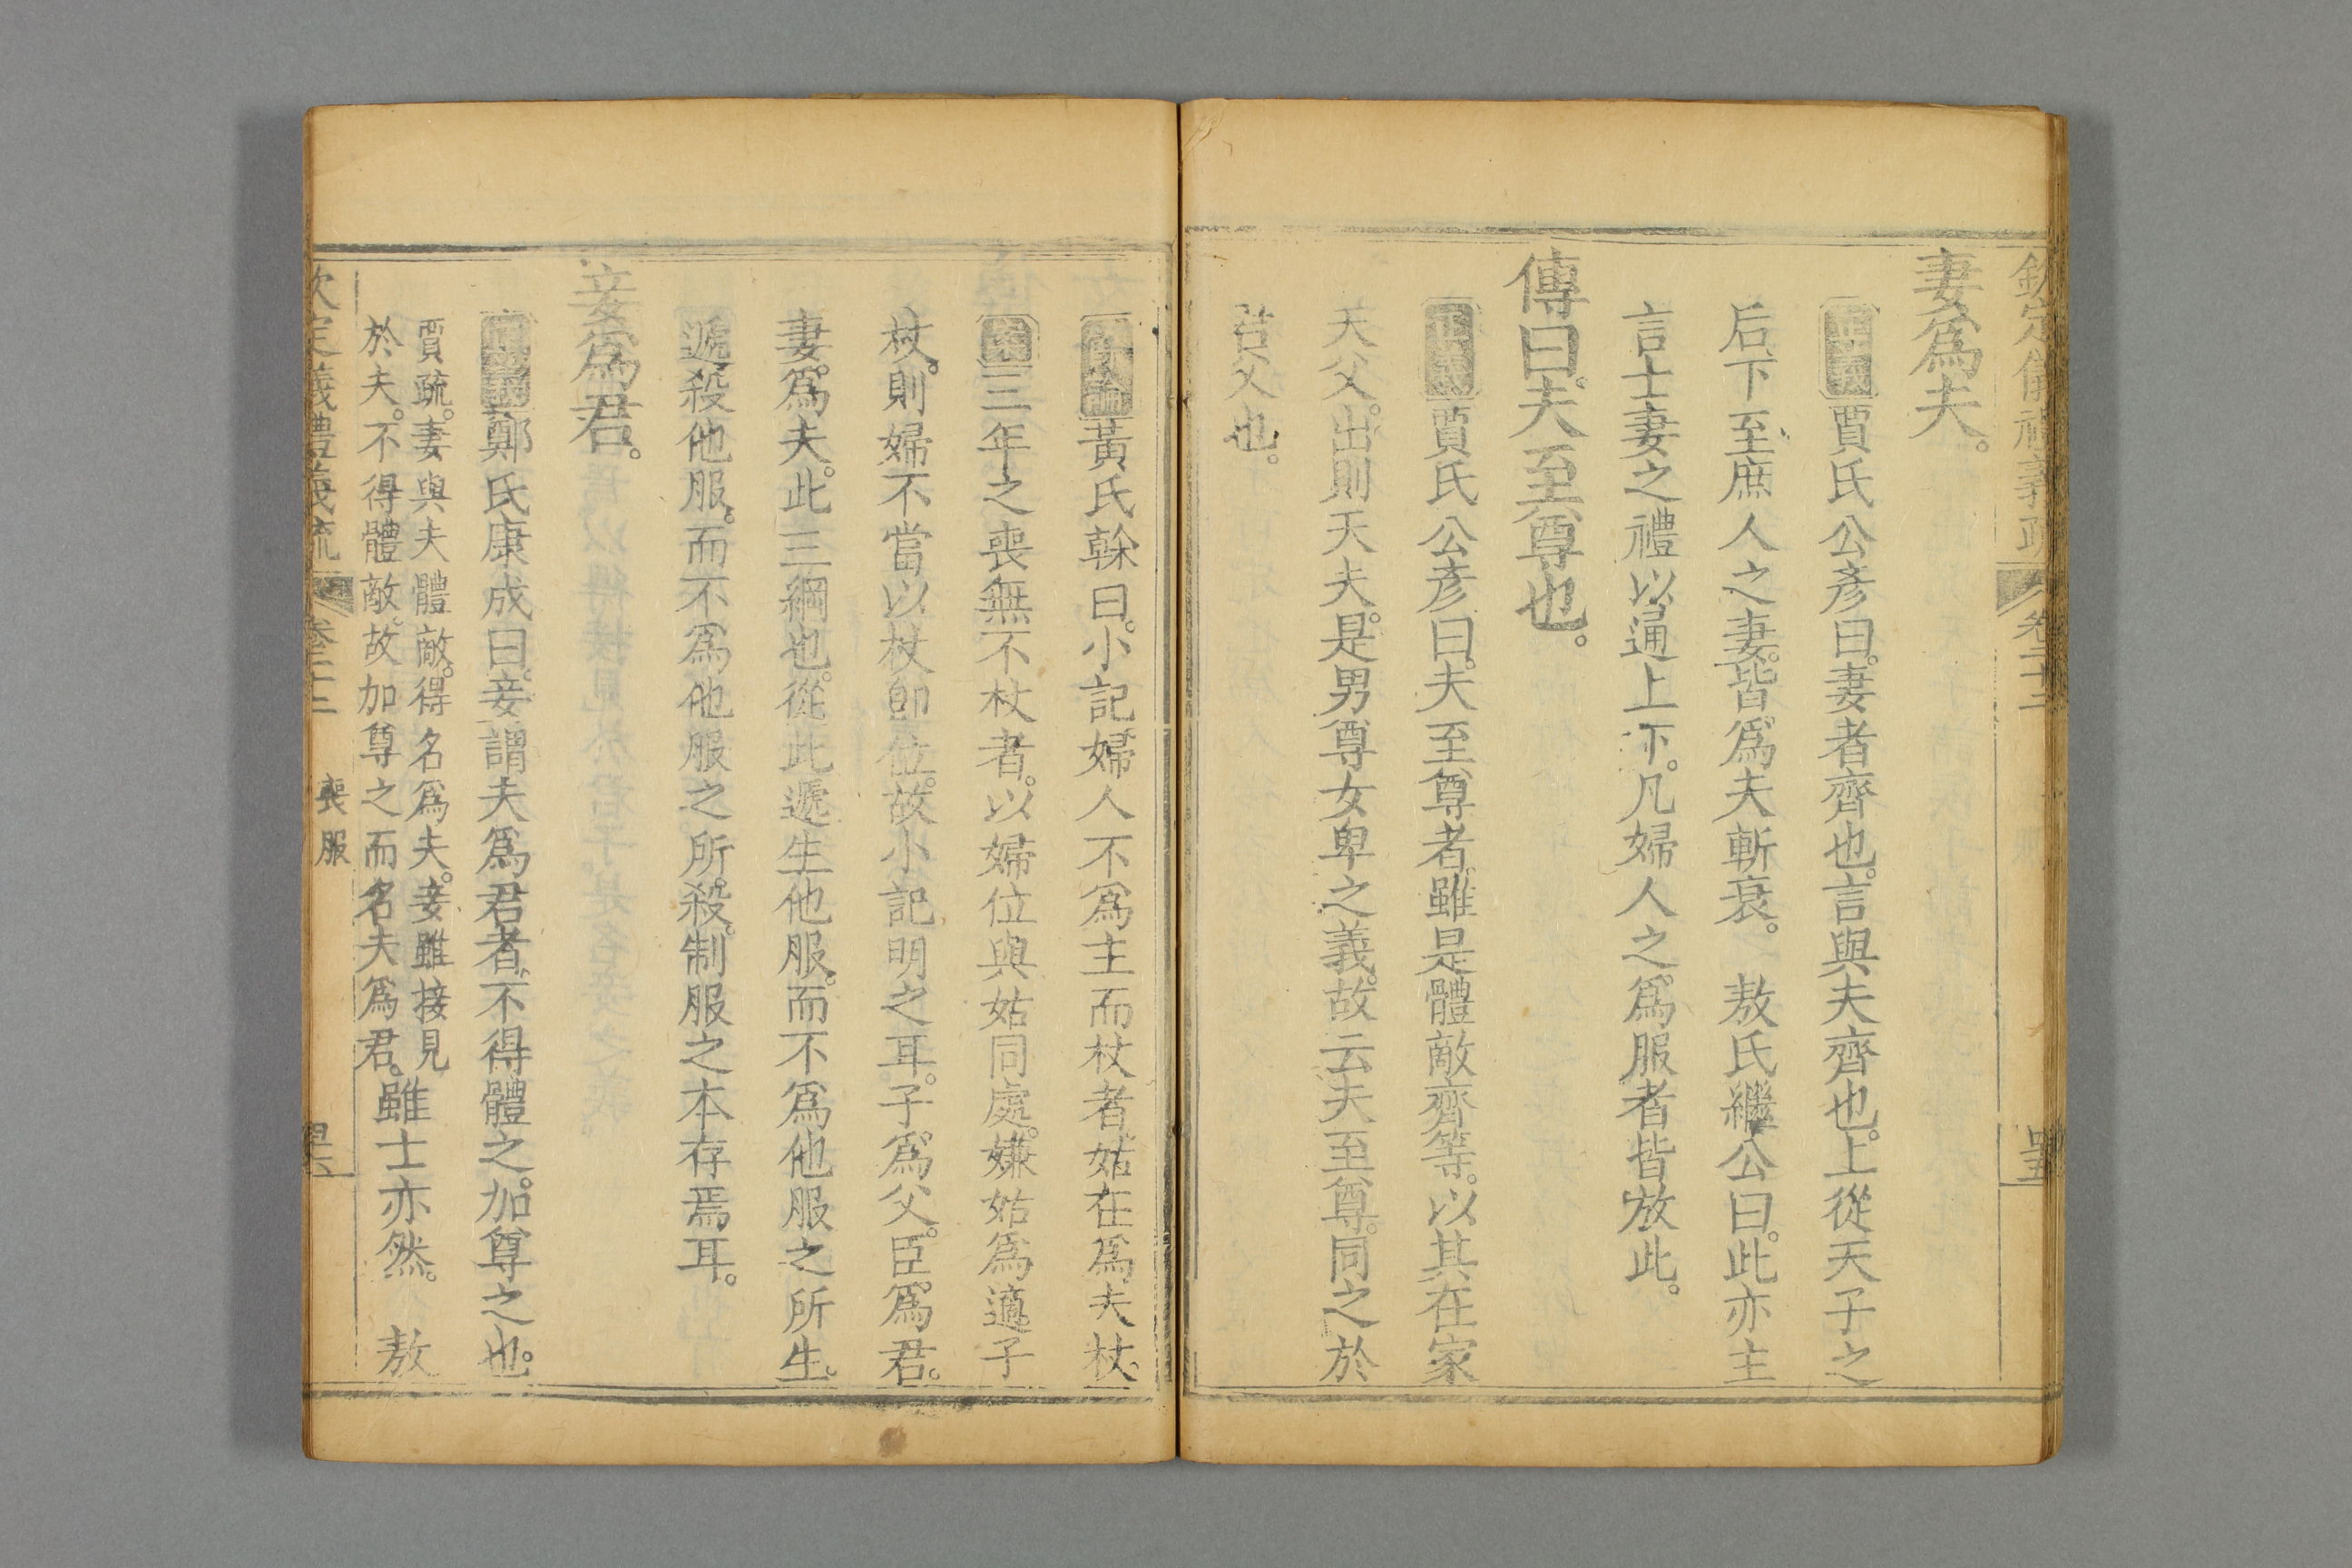 欽定儀禮義疏 卷二十二 罢
妻爲夫。
正義賈氏公彥曰。妻者齊也。言與夫齊也。上從天子之
后下至庶人之妻。皆爲夫斬衰。 敖氏繼公曰。此亦主
言士妻之禮以通上下。凡婦人之爲服者皆放此。
傳曰。夫至尊也。
正義賈氏公彥曰。夫至尊者。雖是體敵齊等。以其在家
天父。出則天夫。是男尊女卑之義。故云夫至尊。同之於
君父也。
餘論黃氏榦曰。小記婦人不爲主而杖者。姑在爲夫杖。
案三年之喪無不杖者。以婦位與姑同處。嫌姑爲適子
杖。則婦不當以杖卽位。故小記明之耳。子爲父。臣爲君。
妻爲夫。此三綱也。從此遞生他服。而不爲他服之所生。
遞殺他服。而不爲他服之所殺。制服之本存焉耳。
妾爲君。
正義鄭氏康成曰。妾謂夫爲君者。不得體之。加尊之也。
賈疏。妻與夫體敵。得名爲夫。妾雖接見
於夫。不得體敵。故加尊之而名夫爲君。雖士亦然。 敖
欽定儀禮義疏 卷二十二 喪服